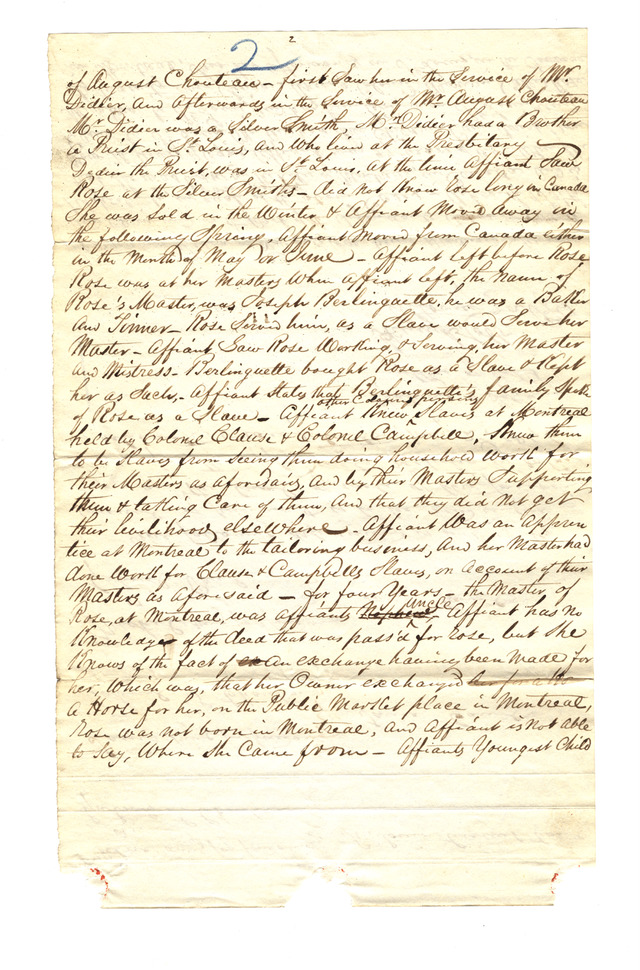 2
2
of August Chouteau – first Saw her in the Service of Mr.
Didier, and afterwards in the Service of Mr. August Chouteau
Mr. Didier was a Silver Smith, Mr. Didier had a Brother
a Priest in St. Louis, and who lived at the Presbitary
Didier the Priest, was in St. Louis, at the time Affiant Saw
Rose at the Silver Smiths – did not Know Rose long in Canada
She was Sold in the Winter & Affiant Moved Away in
the following Spring, Affiant Moved from Canada either
in the Month of May or June – Affiant left before Rose
Rose was at her Masters When Affiant left, the name of
Rose's Master, was Joseph Berlinquette, he was a Baker
and Tinner – Rose Served him, as a Slave would Serve her
Master – Affiant Saw Rose Working, & Serving, her Master
and Mistress – Berlinquette bought Rose as a Slave & Kept
her as Such, – Affiant States that Berlinquette's family Spoke
of Rose as a Slave – Affiant Knew other Slaves at Montreal
held by Colonel Clause & Colonel Campbell, Knew them
to be Slaves from Seeing them doing household Work for
their Masters as aforesaid, and by their Masters Supporting
them & taking Care of them, and that they did not get
their livelihood elsewhere – Affiant Was an Appren
tice at Montreal to the tailoring business, and her Master had
done Work for Clause & Campbells Slaves, on Account of their
Masters as aforesaid – for four Years – the Master, of
Rose, at Montreal, was affiants Nephew Uncle Affiant has no
Knowledge of the deed that was pass'd for Rose, but She
Knows of the fact of an exchange having been Made for
her; Which was, that her Owner exchanged
a Horse for her, on the Public Market place in Montreal,
Rose was not born in Montreal, and Affiant is not able
to Say, Where She Came from – Affiants Youngest Child